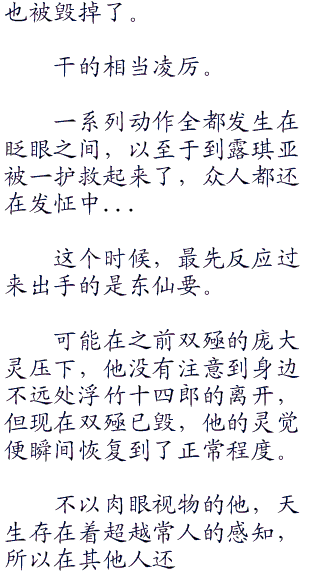 也被毁掉了。
干的相当凌厉。
一系列动作全都发生在
眨眼之间，以至于到露琪亚
被一护救起来了，众人都还
在发怔中...
这个时候，最先反应过
来出手的是东仙要。
可能在之前双殛的庞大
灵压下，他没有注意到身边
不远处浮竹十四郎的离开，
但现在双殛已毁，他的灵觉
便瞬间恢复到了正常程度。
不以肉眼视物的他，天
生存在着超越常人的感知，
所以在其他人还